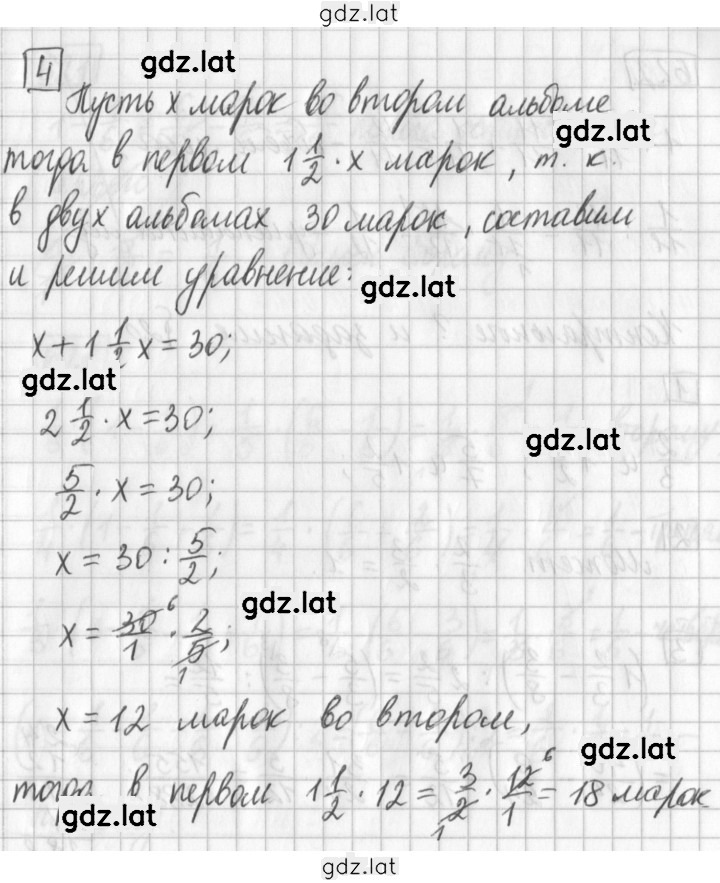 gdz.lat
4
gdz.lat
Пусть x марок во втором альбоме
gdz.lat
тогда в первом 1 1/2 · x марок, т. к.
в двух альбомах 30 марок, составим
и решим уравнение:
gdz.lat
x + 1 1/2 x = 30;
gdz.lat
2 1/2 · x = 30;
gdz.lat
5/2 · x = 30;
x = 30 : 5/2;
gdz.lat
x = 30/1 · 2/5; 6 1
x = 12 марок во втором,
gdz.lat
тогда в первом 1 1/2 · 12 = 3/2 · 12/1 = 18 марок 6 1
gdz.lat
gdz.lat